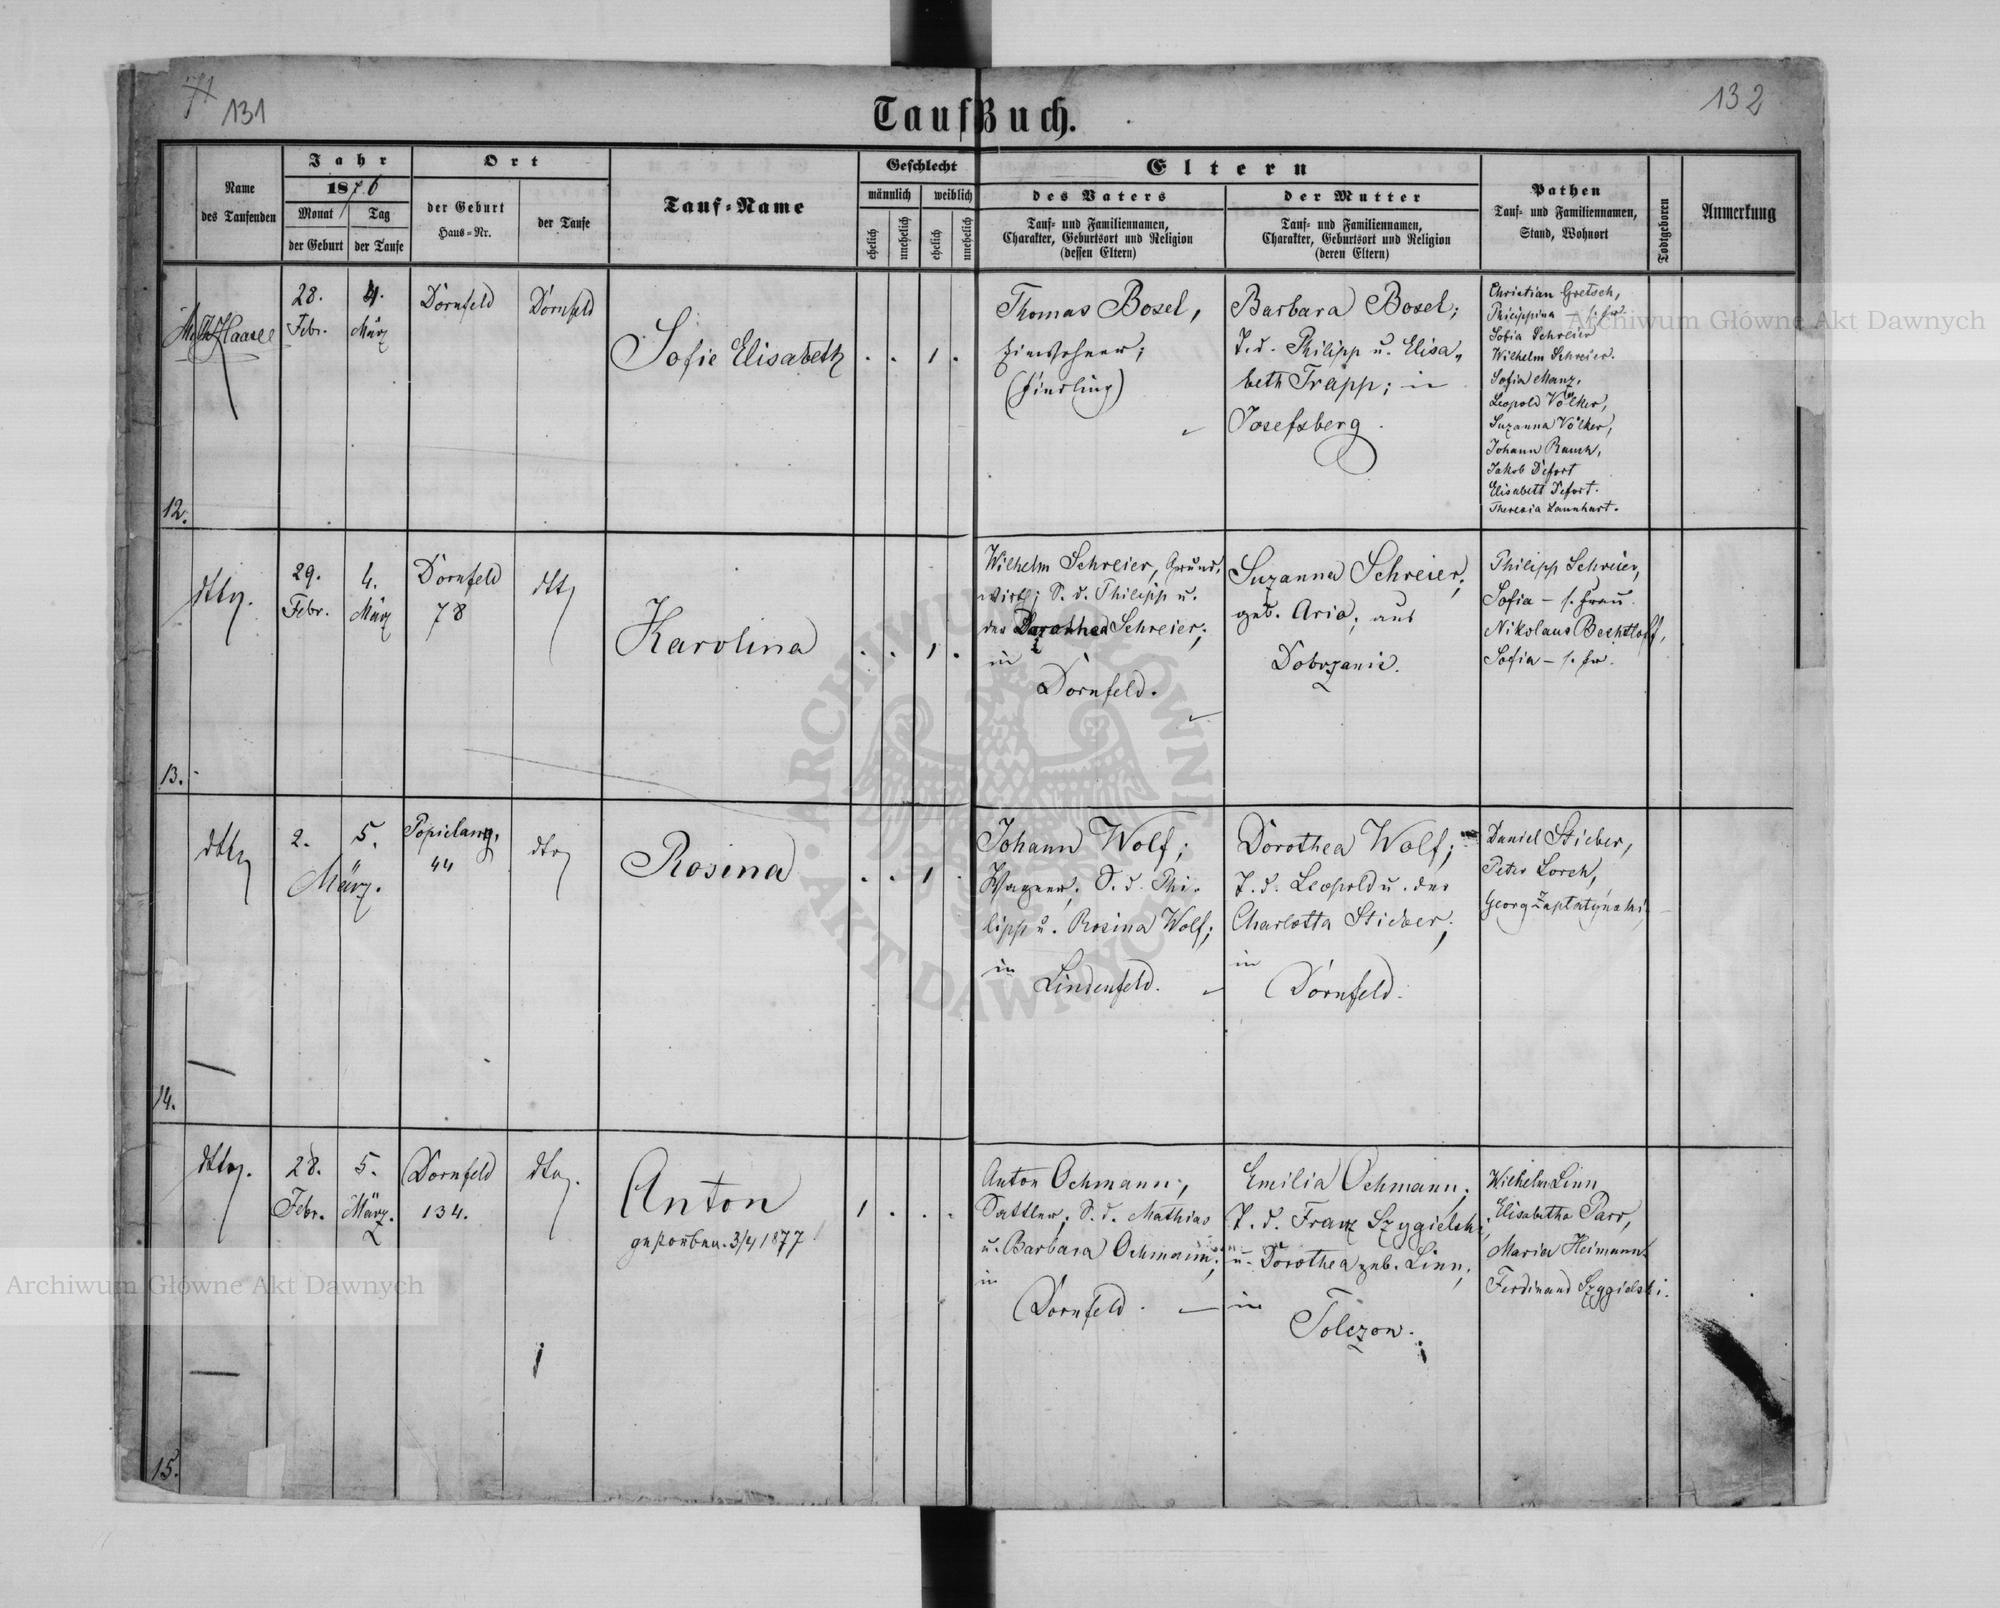 131
132
TaufBuch.
Name
des Taufenden
Jahr
1876
Monat
der Geburt
Tag
der Taufe
Ort
der Geburt
Haus-Nr.
der Taufe
Tauf-Name
Geschlecht
männlich
weiblich
ehelich
unehelich
ehelich
unehelich
Eltern
des Vaters
Tauf- und Familiennamen,
Charakter, Geburtsort und Religion
(dessen Eltern)
der Mutter
Tauf- und Familiennamen,
Charakter, Geburtsort und Religion
(deren Eltern)
Pathen
Tauf- und Familiennamen,
Stand, Wohnort
Todtgeboren
Anmerkung
12.
Haase
28.
Febr.
4.
März
Dornfeld
Dornfeld
Sofie Elisabeth
. . 1 .
Thomas Bosel,
Einwohner;
(Findling)
Barbara Bosel;
T. d. Philipp u. Elisa-
beth Trapp; in
Josefsberg.
Christian Gretsch,
Philippina – s. Fr.
Sofia Schreier
Wilhelm Schreier.
Sofia Manz,
Leopold Völker,
Suzanna Völker,
Johann Rauch,
Jakob Defort
Elisabeth Defort.
Theresia Launhart.
13.
dtto.
29.
Febr.
4.
März
Dornfeld
78
dtto
Karolina
. . 1 .
Wilhelm Schreier, Grund-
wirth; S. d. Philipp u.
der Dorothea Schreier;
in
Dornfeld.
Suzanna Schreier,
geb. Aria; aus
Dobrzanie.
Philipp Schreier,
Sofia – s. Frau.
Nikolaus Bechtloff,
Sofia – s. Fr.
14.
dtto
2.
März.
5.
44
dto
Rosina
. . 1 .
Johann Wolf;
Wagner; S. d. Phi-
lipp u. Rosina Wolf;
in
Lindenfeld.
Dorothea Wolf;
T. d. Leopold u. der
Charlotta Stieber;
in
Dornfeld.
Daniel Stieber,
Peter Lorch,
Georg Zaplatyński
15.
dtto.
28.
Febr.
5.
März.
Dornfeld
134.
dto.
Anton
gestorben. 3/4 1877
1 . . .
Anton Ochmann;
Sattler; S. d. Mathias
u. Barbara Ochmann;
in
Dornfeld.
Emilia Ochmann;
T. d. Franz Szygielski
u. Dorothea geb. Linn;
in
Tolszow.
Wilhelm Linn
Elisabetha Parr,
Maria Heimann
Ferdinand Szygielski.
Archiwum Główne Akt Dawnych
ARCHIWUM GŁÓWNE
AKT DAWNYCH
Archiwum Główne Akt Dawnych